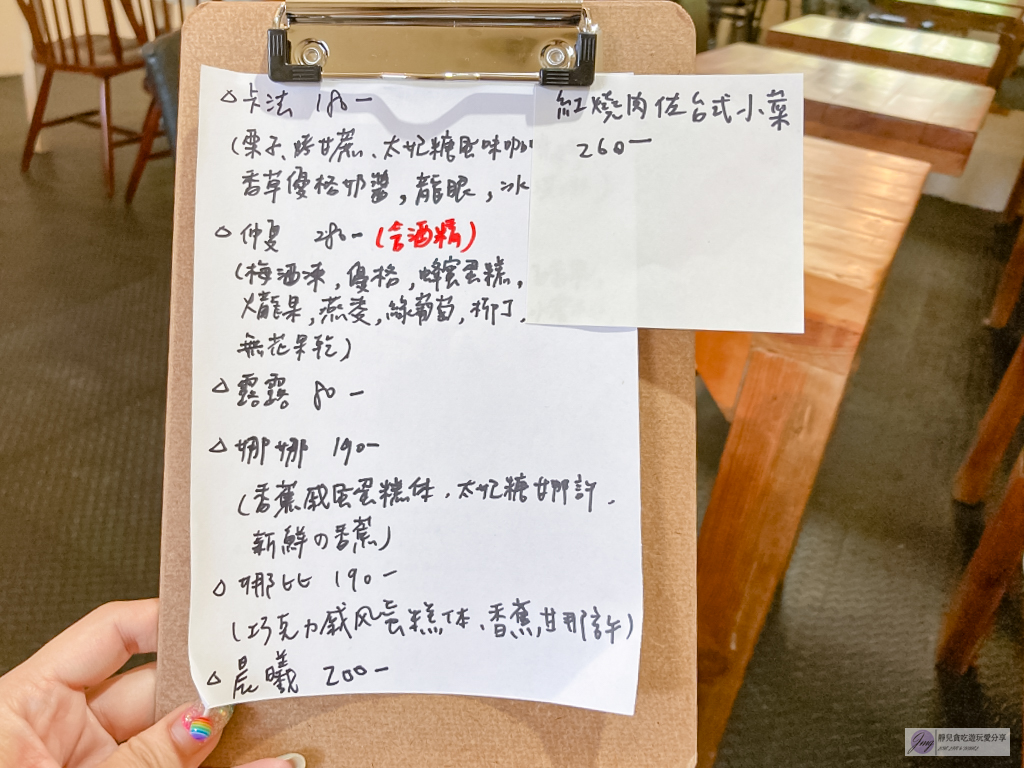 △卡法 180-
(栗子、烤甘蔗、太妃糖風味咖
香草優格奶醬,龍眼,冰
○仲夏 280- (含酒精)
(梅酒凍,優格,蜂蜜蛋糕,
火龍果,燕麥,綠葡萄,柳丁,
無花果乾)
△露露 80-
△娜娜 190-
(香蕉戚風蛋糕体、太妃糖甘那許、
新鮮の香蕉)
△娜比 190-
(巧克力戚风蛋糕体、香蕉,甘那許)
△晨曦 200-
紅燒肉佐台式小菜
260-
靜兒貪吃遊玩愛分享